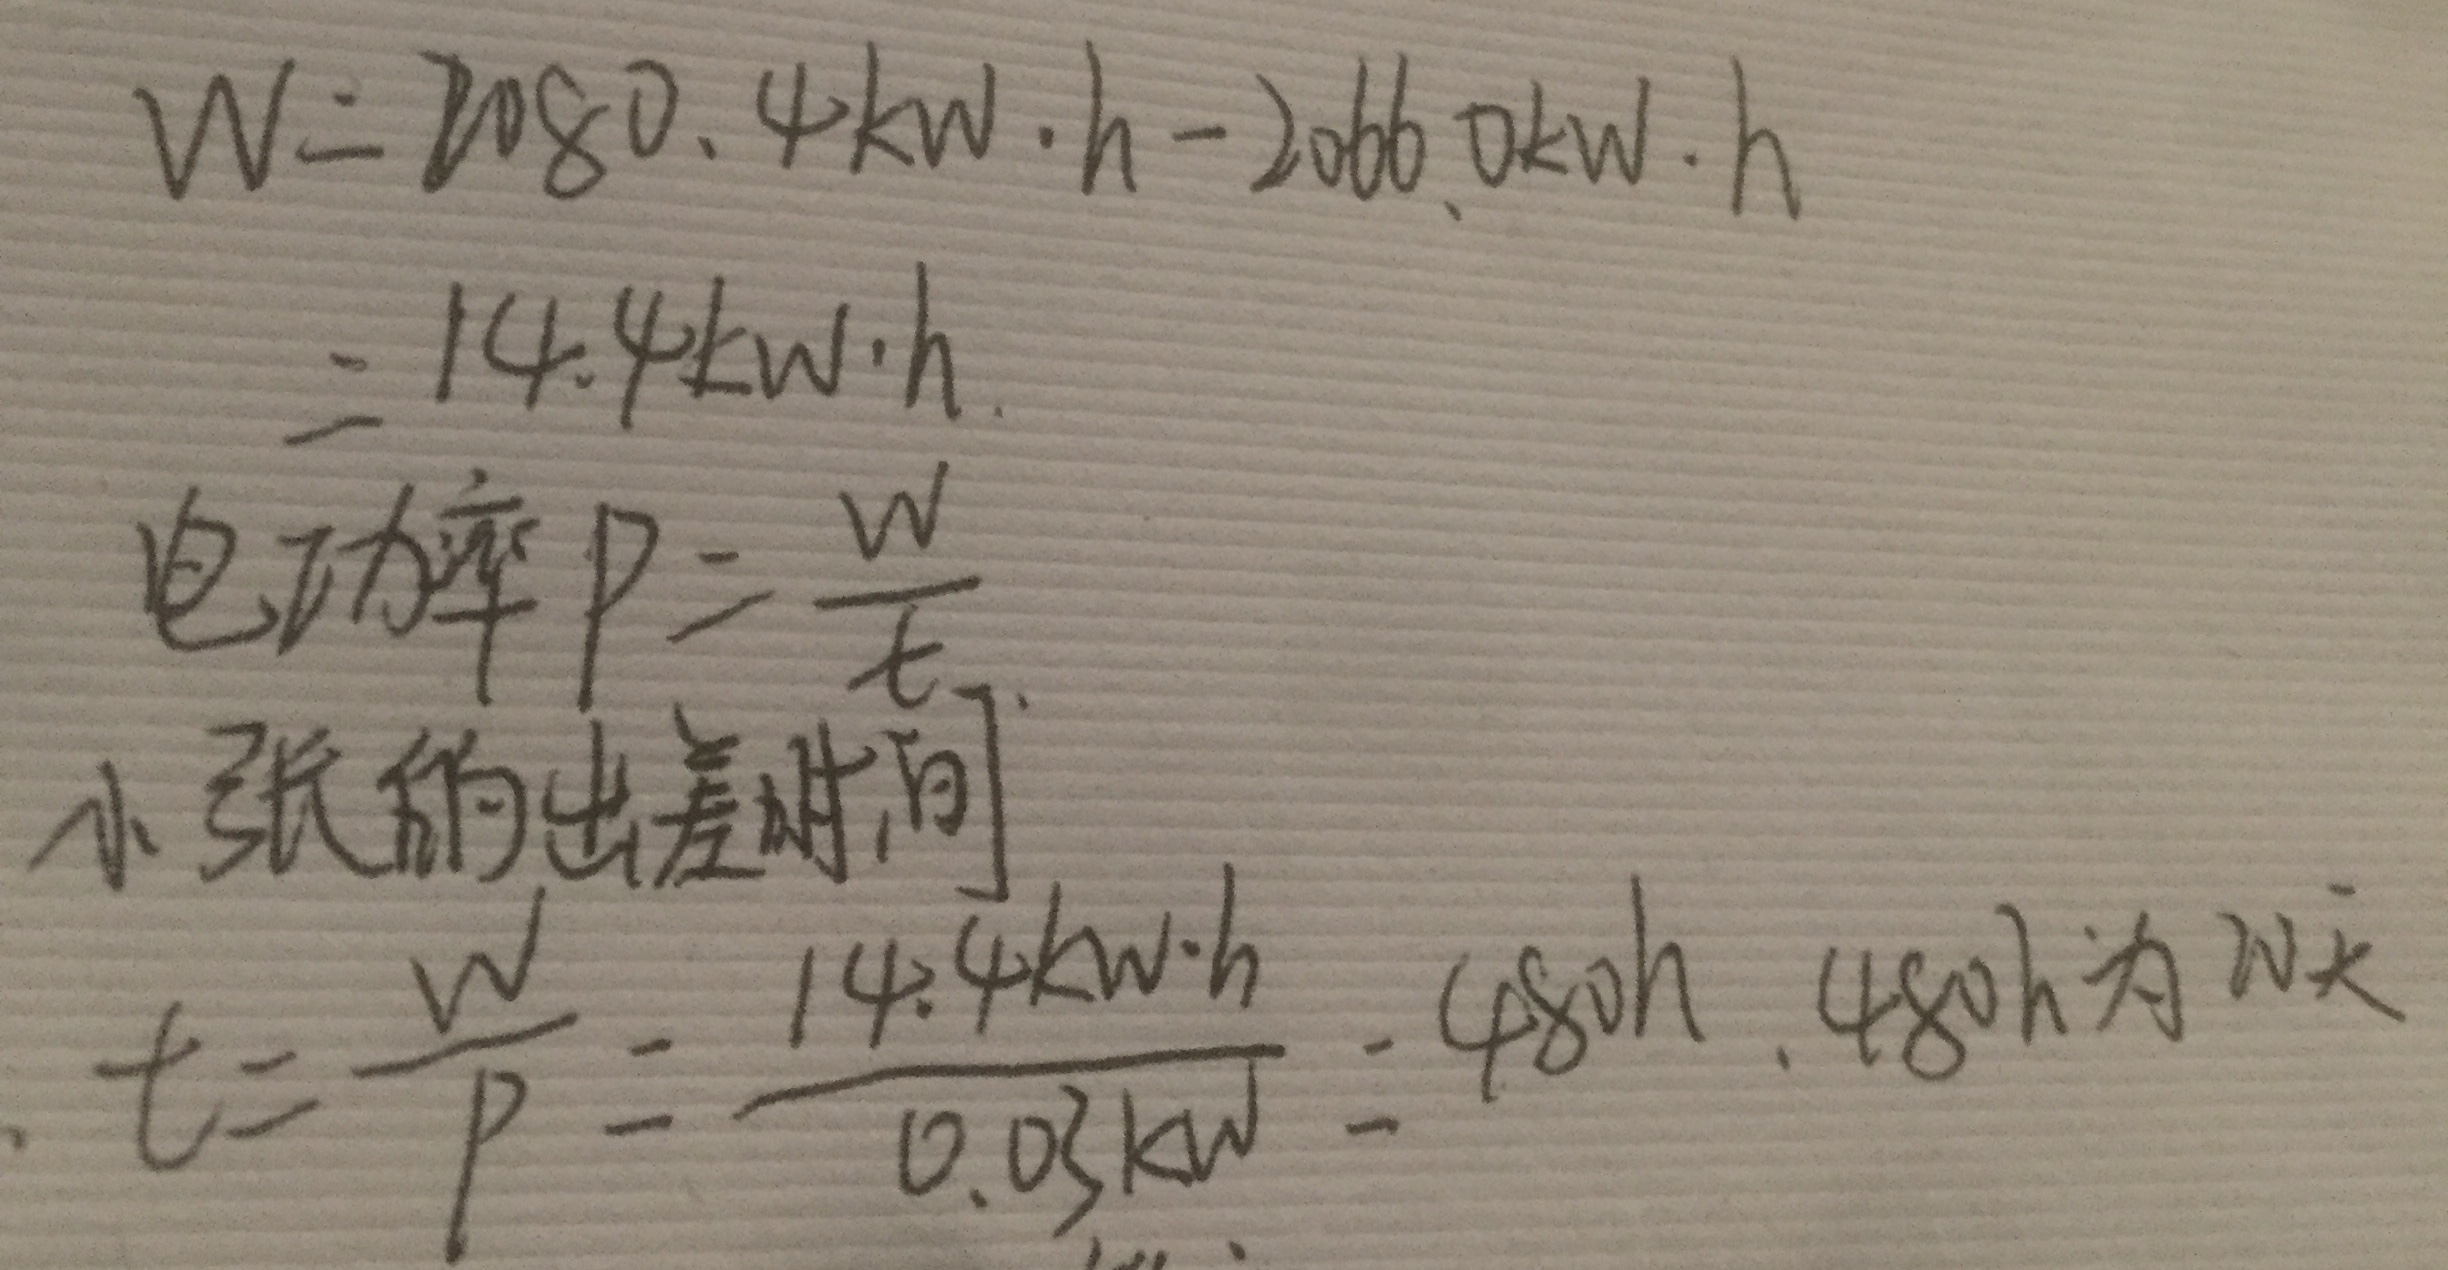 W=2080.4kW·h-2066.0kW·h
=14.4kW·h.
电功率P=W/t.
小张的出差时间
t=W/P=14.4kW·h/0.03kW=480h.480h为20天